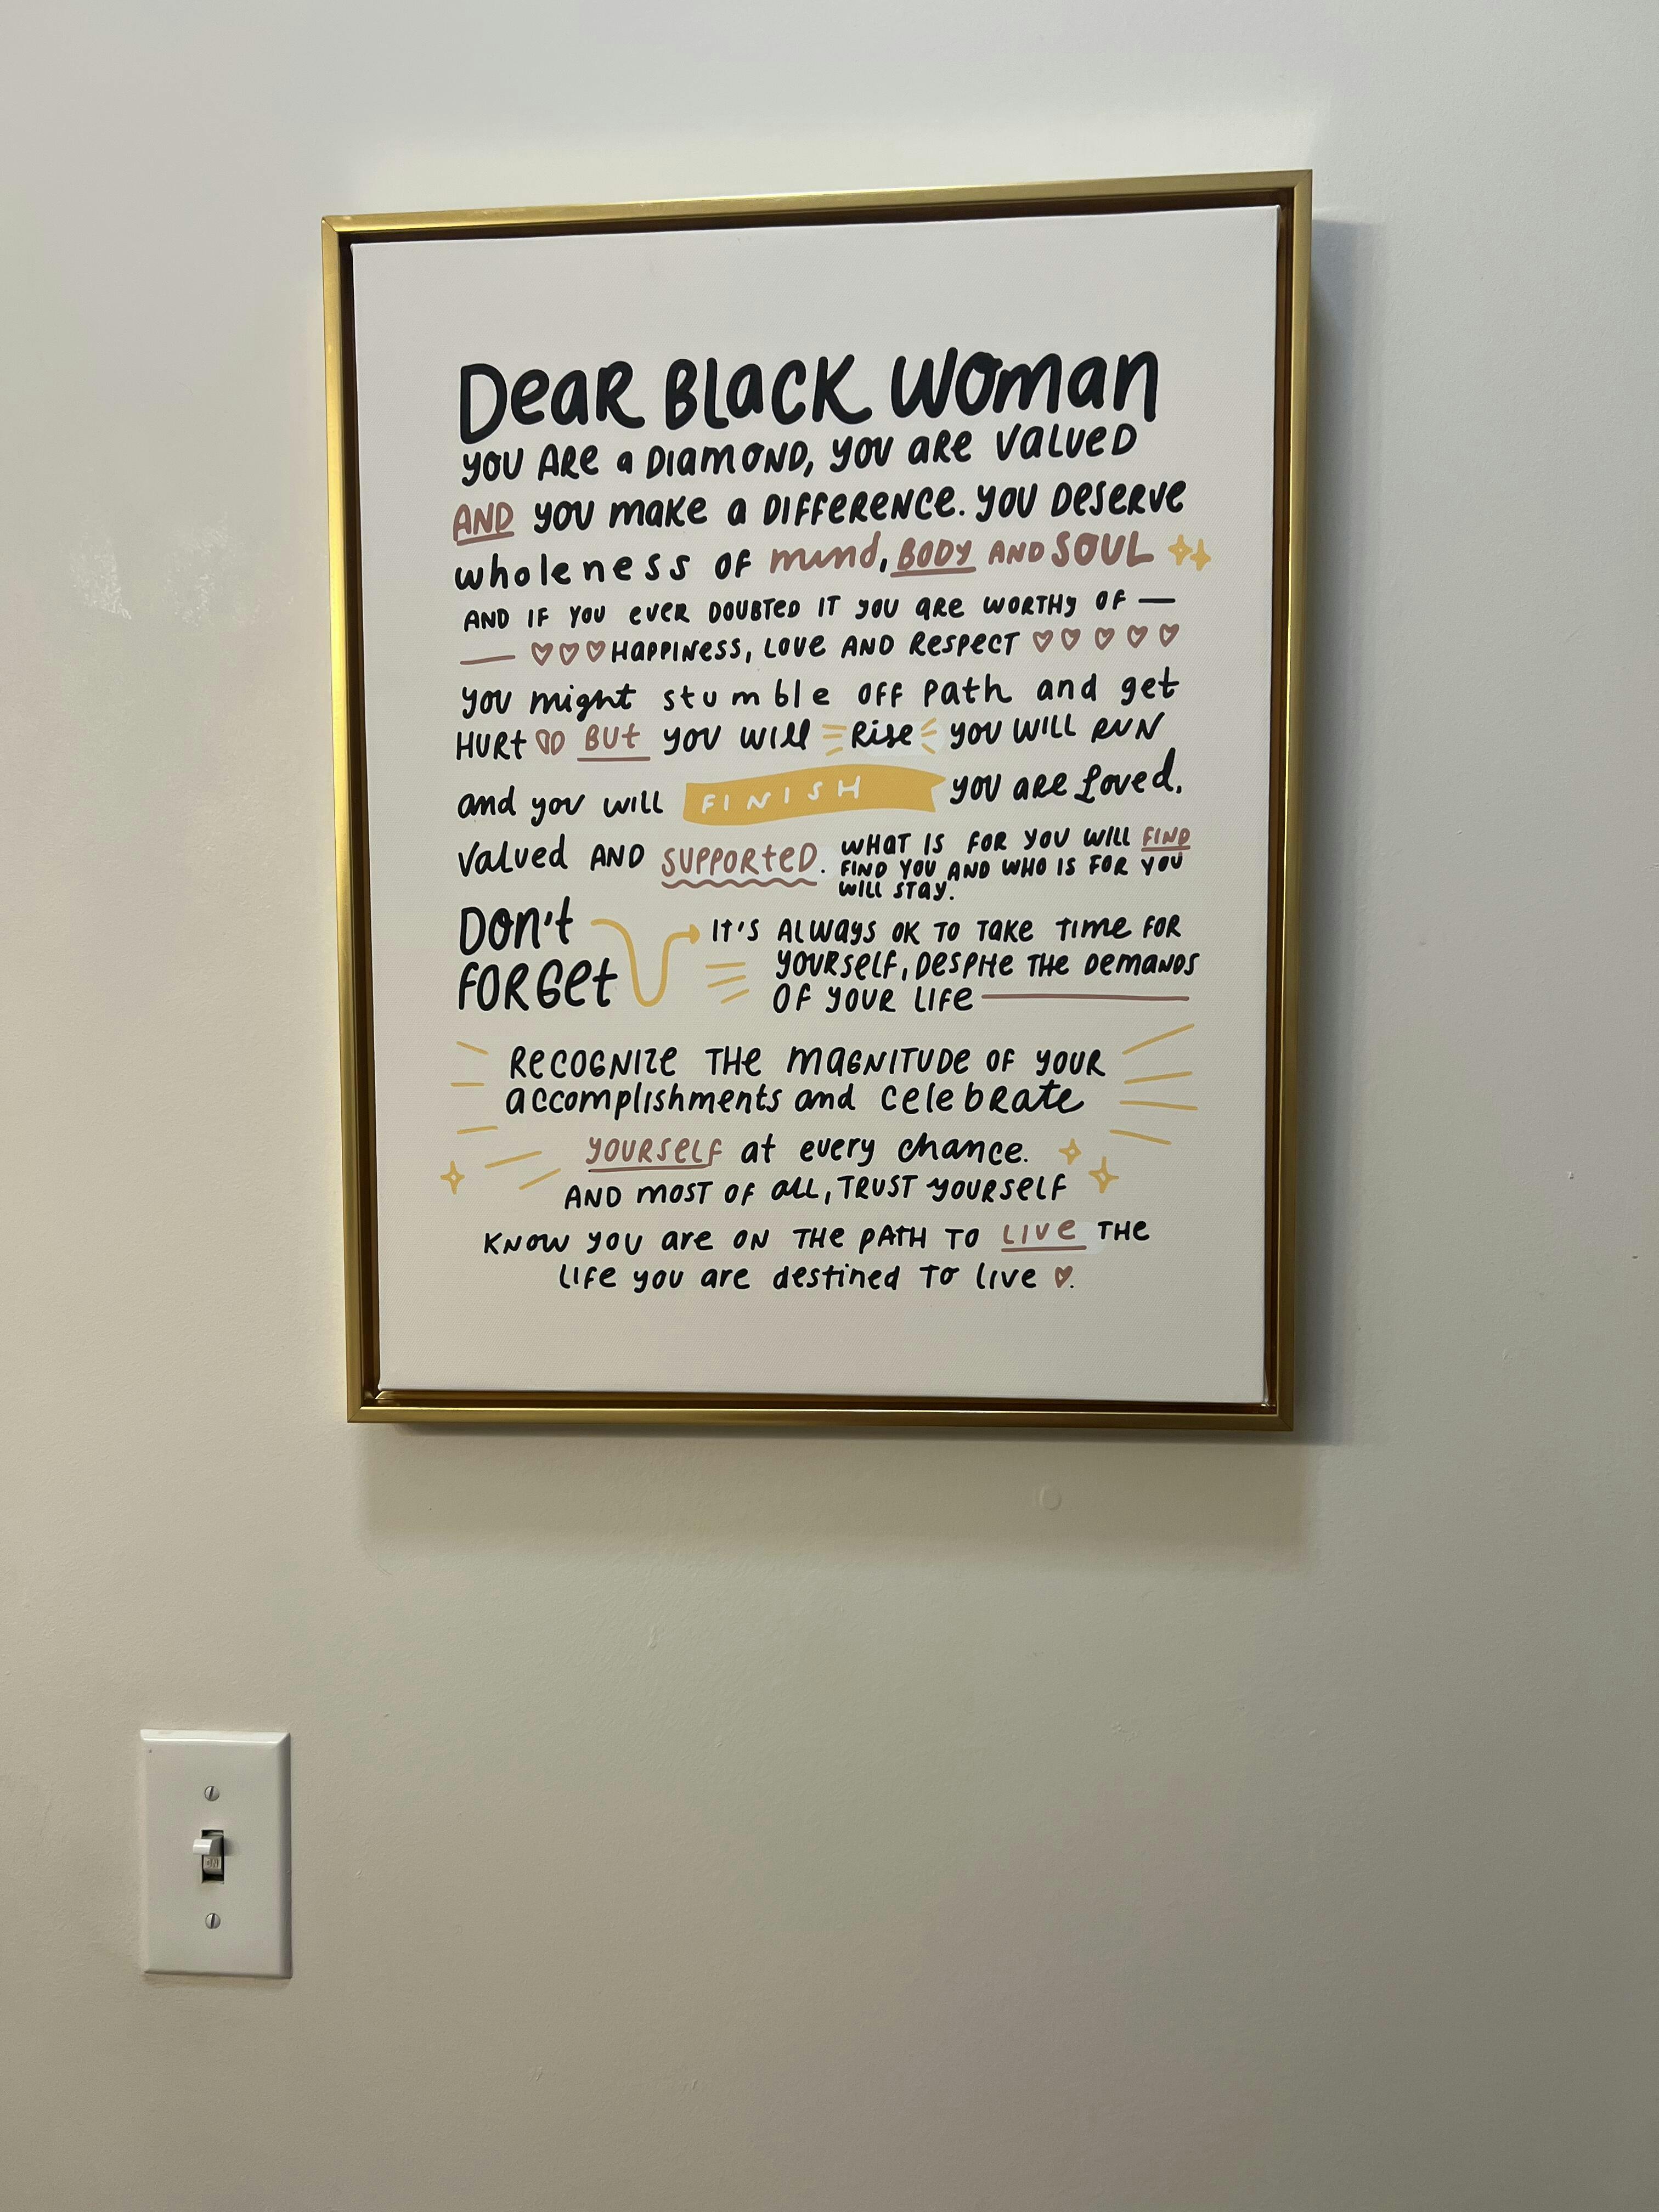 Dear Black Woman
you are a Diamond, you are valued
AND you make a DIFFERENCE. you Deserve
wholeness of mind, BODY AND SOUL
AND IF you ever DOUBTED IT you are WORTHY OF —
— Happiness, Love AND Respect
you might stumble off path and get
HURt BUt you will Rise you will RUN
and you will FINISH you are Loved,
Valued AND SUPPORteD. WHAT IS FOR YOU WILL FIND
FIND YOU AND WHO IS FOR YOU
WILL STAY.
Don't
FORGet
IT'S ALWAYS OK TO TAKE TIME FOR
YOURSELF, DESPITE THE DEMANDS
OF YOUR LIFE
RECOGNIZE THE MAGNITUDE OF YOUR
accomplishments and celebrate
YOURSELF at every chance.
AND MOST OF ALL, TRUST YOURSELF
KNOW YOU are ON THE PATH TO LIVE THE
LIFE you are destined TO live